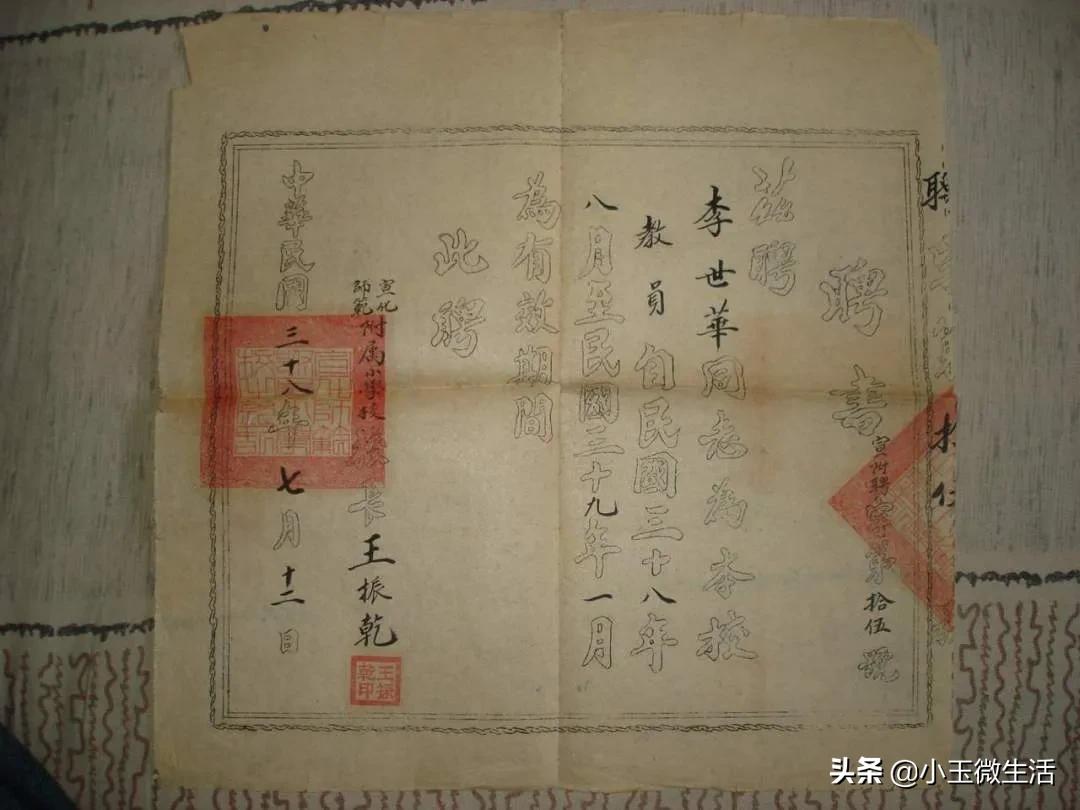 聘書
宣附聘字第拾伍號
茲聘
李世華同志為本校
教員自民國三十八年
八月至民國三十九年一月
為有效期間
此聘
宣化師範附属小學校校長王振乾
中華民国三十八年七月十二日
王振乾印
头条 @小玉微生活